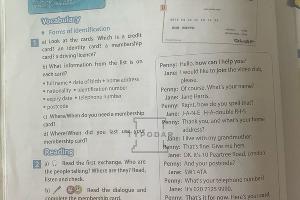 Vocabulary
Forms of Identification
1 a) Look at the cards. Which is a credit
card? an identity card? a membership
card? a driving licence?
b) What information from the list is on
each card?
• full name • date of birth • home address
• nationality • identification number
• expiry date • telephone number
• postcode
c) Where/When do you need a membership
card?
d) Where/When did you last use your
membership card?
Reading
2 a) Read the first exchange. Who are
the people talking? Where are they? Read,
listen and check.
b) Read the dialogue and
complete the membership card.
Penny: Hello, how can I help you?
Jane: I would like to join the video club,
please.
Penny: Of course. What's your name?
Jane: Jane Harris.
Penny: Right, how do you spell that?
Jane: J-A-N-E H-A-double R-I-S
Penny: Thank you, and what's your home
address?
Jane: I live with my grandmother.
Penny: That's fine. Give me hers.
Jane: OK. It's 10 Peartree Road, London.
Penny: And your postcode?
Jane: SW1 4TA
Penny: What's your telephone number?
Jane: It's 020 7125 9900.
Penny: That's it for now. Here's your card.